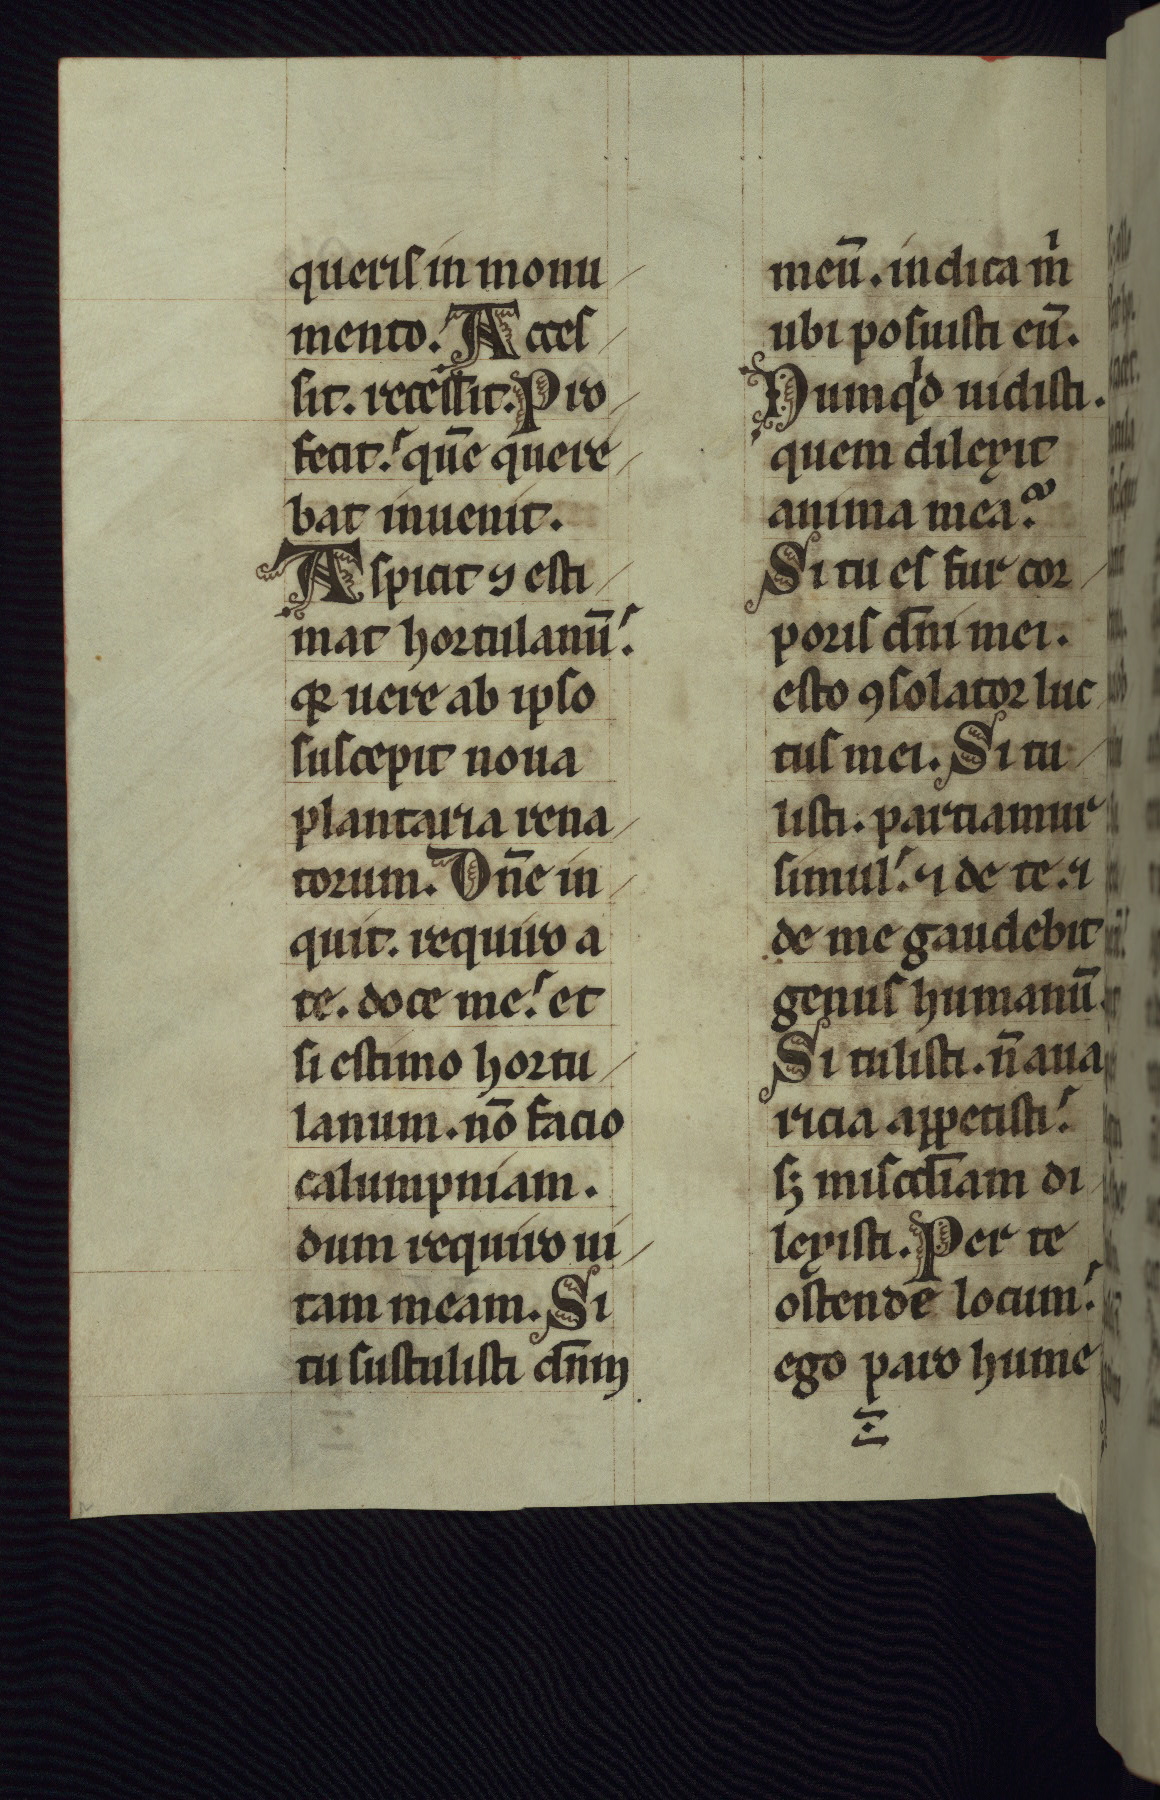 queris in monu
mento. Acces
sit. recessit. Pro
fecit. quē quere
bat inuenit.
Aspicit ꝯ esti
mat hortulanū.
qꝛ uere ab ipso
suscepit noua
plantaria rena
torum. Dn̄e in
quit. requiro a
te. doce me. et
si estimo hortu
lanum. nō facio
calumpniam.
dum requiro ui
tam meam. Si
tu sustulisti dn̄m
meū. indica m̅
ubi posuisti eū.
Numqd uidisti.
quem dilexit
anima mea?
Si tu es fur cor
poris dn̄i mei.
esto ꝯsolator luc
tus mei. Si tu
listi. partiamur
simul. ⁊ de te. ⁊
de me gaudebit
genus humanū.
Si tulisti. n̄ aua
ricia appetisti.
sꝫ misc̄diam di
lexisti. Per te
ostende locum.
ego paro hume